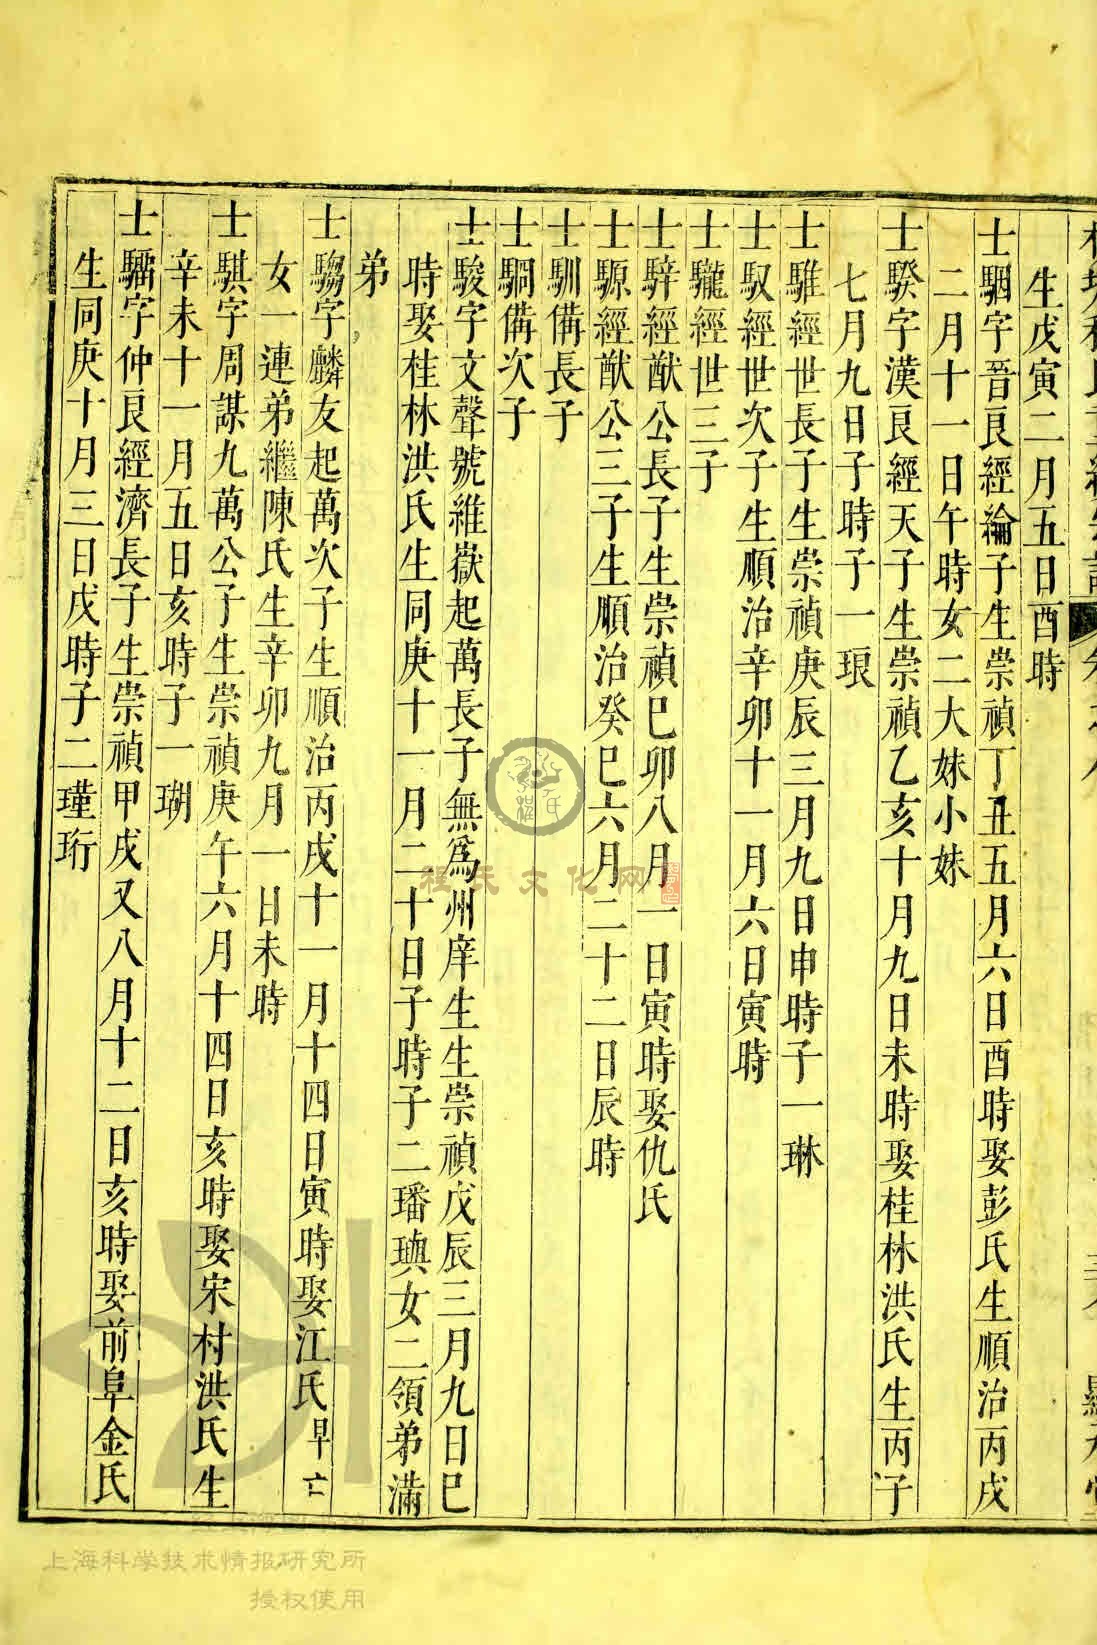 生戊寅二月五日酉時
士駰字晉良經綸子生崇禎丁丑五月六日酉時娶彭氏生順治丙戌
二月十一日午時女二大妹小妹
士騤字漢良經天子生崇禎乙亥十月九日未時娶桂林洪氏生丙子
七月九日子時子一琅
士騅經世長子生崇禎庚辰三月九日申時子一琳
士馭經世次子生順治辛卯十一月六日寅時
士驡經世三子
士騂經猷公長子生崇禎巳卯八月一日寅時娶仇氏
士騵經猷公三子生順治癸巳六月二十二日辰時
士馴備長子
士駉備次子
士駿字文聲號維嶽起萬長子無爲州庠生生崇禎戊辰三月九日巳
時娶桂林洪氏生同庚十一月二十日子時子二璠璵女二領弟滿
弟
士騶字麟友起萬次子生順治丙戌十一月十四日寅時娶江氏早亡
女一連弟繼陳氏生辛卯九月一日未時
士騏字周謀九萬公子生崇禎庚午六月十四日亥時娶宋村洪氏生
辛未十一月五日亥時子一瑚
士驑字仲良經濟長子生崇禎甲戌又八月十二日亥時娶前阜金氏
生同庚十月三日戌時子二瑾珩
程氏文化网
上海科学技术情报研究所
授权使用